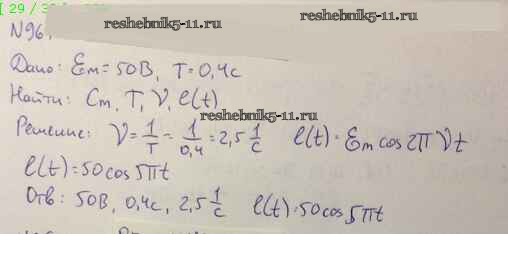 [ 29 / 3
reshebnik5-11.ru
N96.
Дано: Ɛm=50В, T=0,4с
Найти: Ɛm, T, ν, e(t)
reshebnik5-11.ru
Решение: ν=1/T=1/0,4=2,5 1/с e(t)=Ɛm cos2πνt
e(t)=50cos5πt
Отв: 50В, 0,4с, 2,5 1/с e(t)=50cos5πt